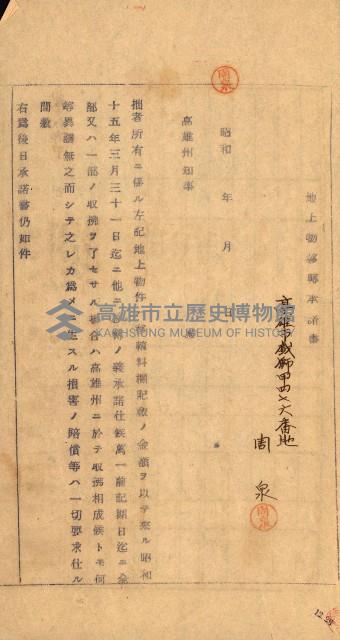 地上物移轉承諾書
高雄市戲獅甲四七六番地
周 泉
周泉
昭和 年 月 日
高雄州知事 殿
拙者所有ニ係ル左記地上物件移轉料欄記載ノ金額ヲ以テ來ル昭和
十五年三月三十一日迄ニ他ニ移轉ノ義承諾仕候萬一前記期日迄ニ全
部又ハ一部ノ收拂ヲ了セサル場合ハ高雄州ニ於テ取拂相成候トモ何
等異議無之而シテ之レカ為メニ生スル損害ノ賠償等ハ一切要求仕ル
間敷
右為後日承諾書仍如件
周泉
高雄市立歷史博物館
KAOHSIUNG MUSEUM OF HISTORY